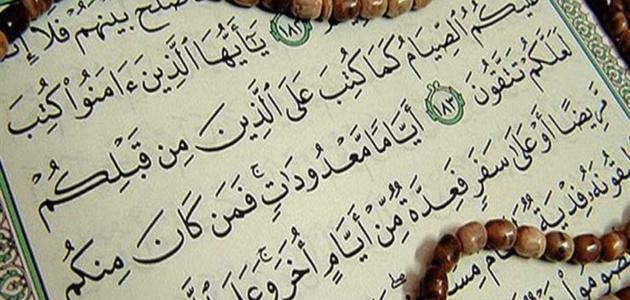 صْلَحَ بَيْنَهُمْ فَلَآ إِ
١٨٢ يَٰٓأَيُّهَا ٱلَّذِينَ ءَامَنُوا۟ كُتِبَ
لَيْكُمُ ٱلصِّيَامُ كَمَا كُتِبَ عَلَى ٱلَّذِينَ مِن قَبْلِكُمْ
لَعَلَّكُمْ تَتَّقُونَ ١٨٣ أَيَّامًا مَّعْدُودَٰتٍۚ فَمَن كَانَ مِنكُم
مَّرِيضًا أَوْ عَلَىٰ سَفَرٍ فَعِدَّةٌ مِّنْ أَيَّامٍ أُخَرَۚ وَعَلَى
يقُونَهُۥ فِدْيَةٌ طَعَامُ مِسْ
صُومُوا۟